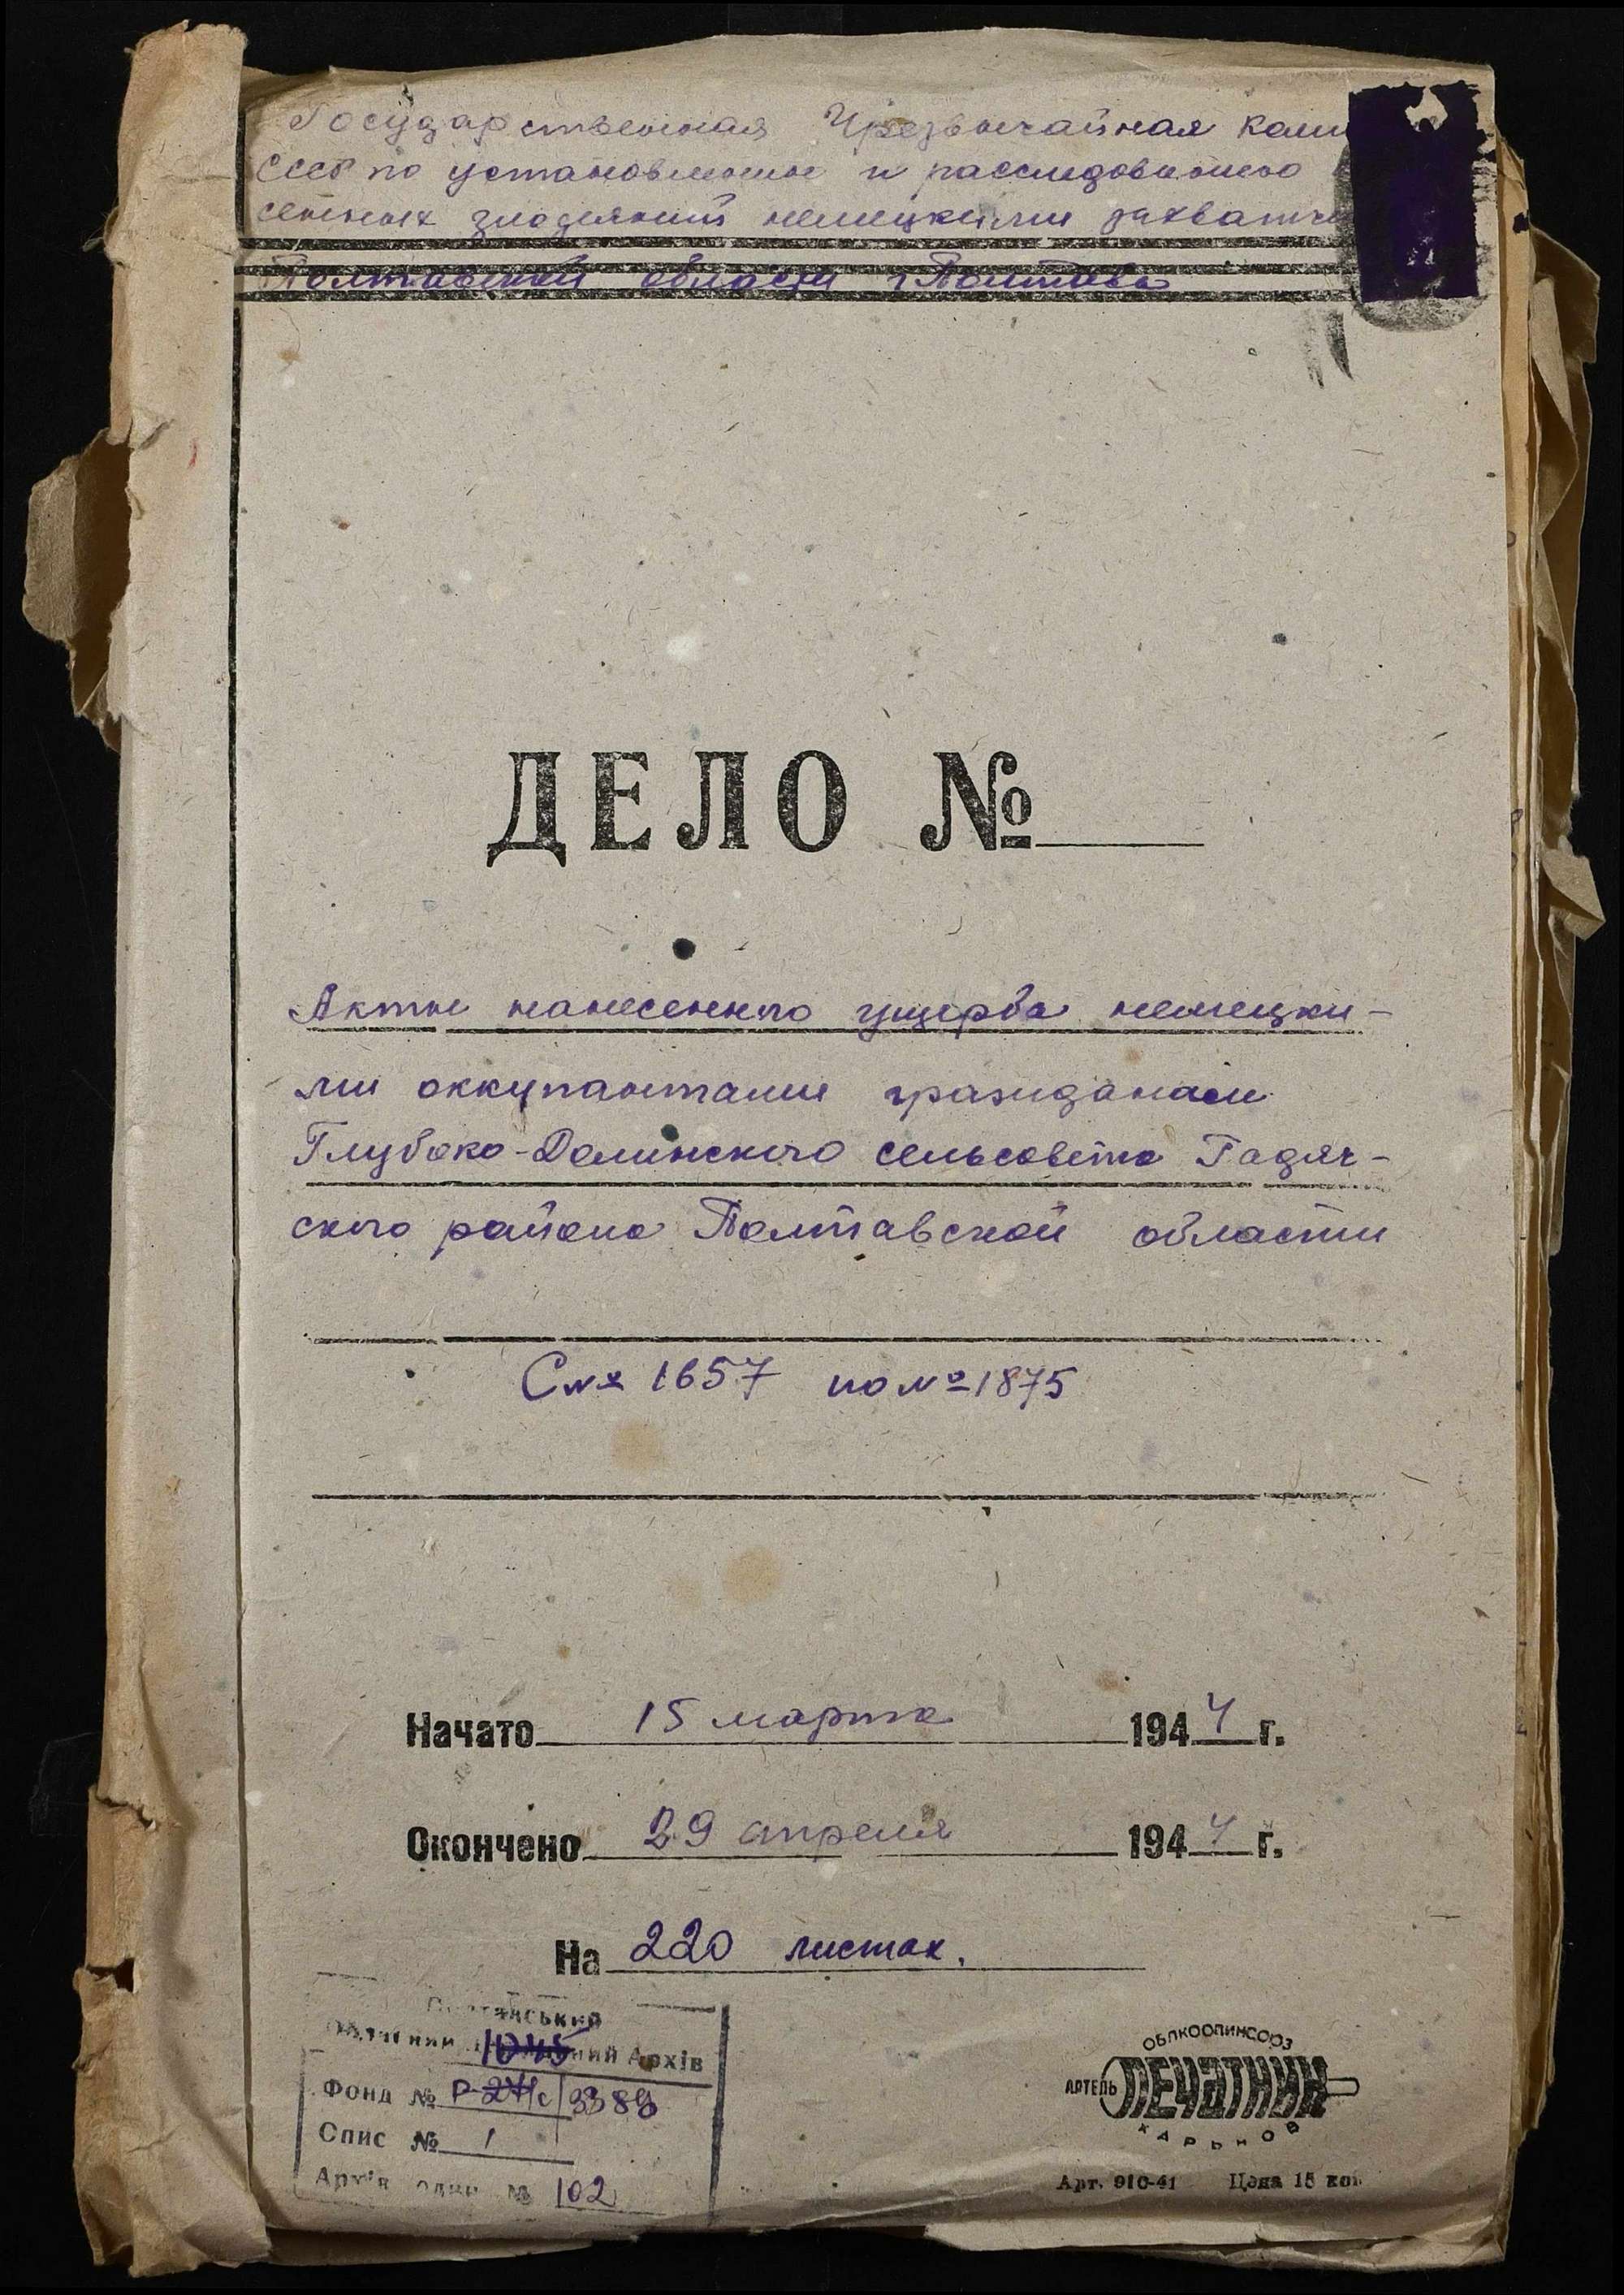 Государственная Чрезвычайная коми
СССР по установлению и расследованию
сенных злодеяний немецкими захватчи
Полтавской области г Полтава
ДЕЛО №
Акты нанесенного ущерба немецки-
ми оккупантами гражданам
Глубоко-Долинского сельсовета Гадяч-
ского района Полтавской области
С № 1657 по № 1875
Начато 15 марта 1944 г.
Окончено 29 апреля 1944 г.
На 220 листах.
Архів
1045
Фонд № Р-
Спис № 1
102
ОБЛКООПИНСОЮЗ
АРТЕЛЬ ПЕЧАТНИК
ХАРЬКОВ
Арт. 910-41 Цена 15 коп